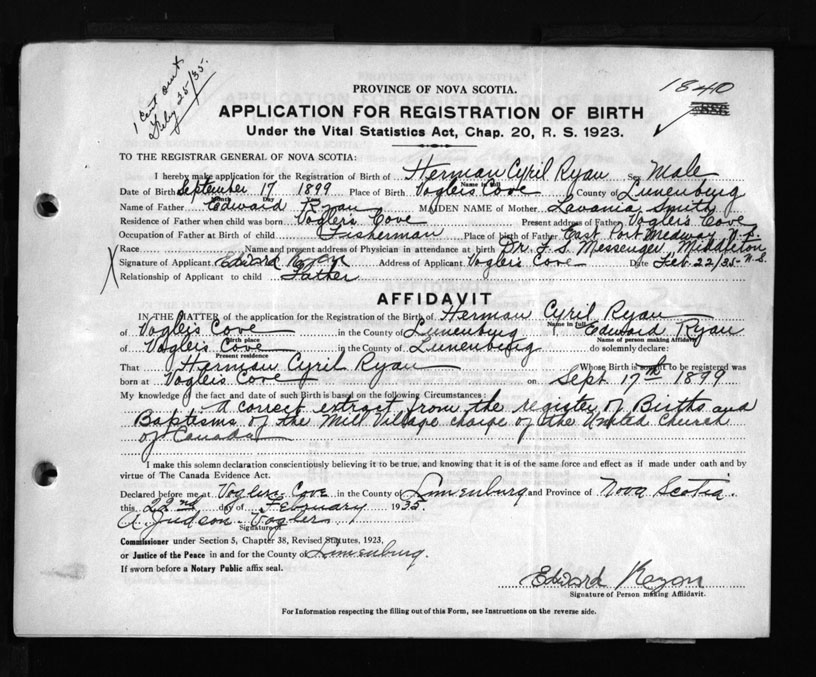 1 Cent out
Feby 25/35.
PROVINCE OF NOVA SCOTIA.
1840
APPLICATION FOR REGISTRATION OF BIRTH
Under the Vital Statistics Act, Chap. 20, R. S. 1923.
TO THE REGISTRAR GENERAL OF NOVA SCOTIA:
I hereby make application for the Registration of Birth of Herman Cyril Ryan Sex Male
Name in full
Date of Birth September 17 1899 Place of Birth Vogler's Cove County of Lunenburg
Month Day Year
Name of Father Edward Ryan MAIDEN NAME of Mother Lavania Smith
Residence of Father when child was born Vogler's Cove Present address of Father Vogler's Cove
Occupation of Father at Birth of child Fisherman Place of birth of Father East Port Medway N.S.
Race Name and present address of Physician in attendance at birth Dr. F. S. Messenger, Middleton, N.S.
Signature of Applicant Edward Ryan Address of Applicant Vogler's Cove Date Feb. 22/35
Relationship of Applicant to child Father
AFFIDAVIT
IN THE MATTER of the application for the Registration of the Birth of Herman Cyril Ryan
Name in full
of Vogler's Cove in the County of Lunenburg Edward Ryan
Birth place Name of person making Affidavit
of Vogler's Cove in the County of Lunenburg do solemnly declare:
Present residence
That Herman Cyril Ryan Whose Birth is sought to be registered was
born at Vogler's Cove on Sept 17th 1899
My knowledge of the fact and date of such Birth is based on the following Circumstances:
A correct extract from the register of Births and
Baptisms of the Mill Village charge of the United Church
of Canada
I make this solemn declaration conscientiously believing it to be true, and knowing that it is of the same force and effect as if made under oath and by
virtue of The Canada Evidence Act.
Declared before me at Voglers Cove in the County of Lunenburg and Province of Nova Scotia.
this 22nd day of February 1935.
A. Judson Vogler
Signature of
Commissioner under Section 5, Chapter 38, Revised Statutes, 1923,
or Justice of the Peace in and for the County of Lunenburg.
If sworn before a Notary Public affix seal.
Edward Ryan
Signature of Person making Affidavit.
For Information respecting the filling out of this Form, see Instructions on the reverse side.